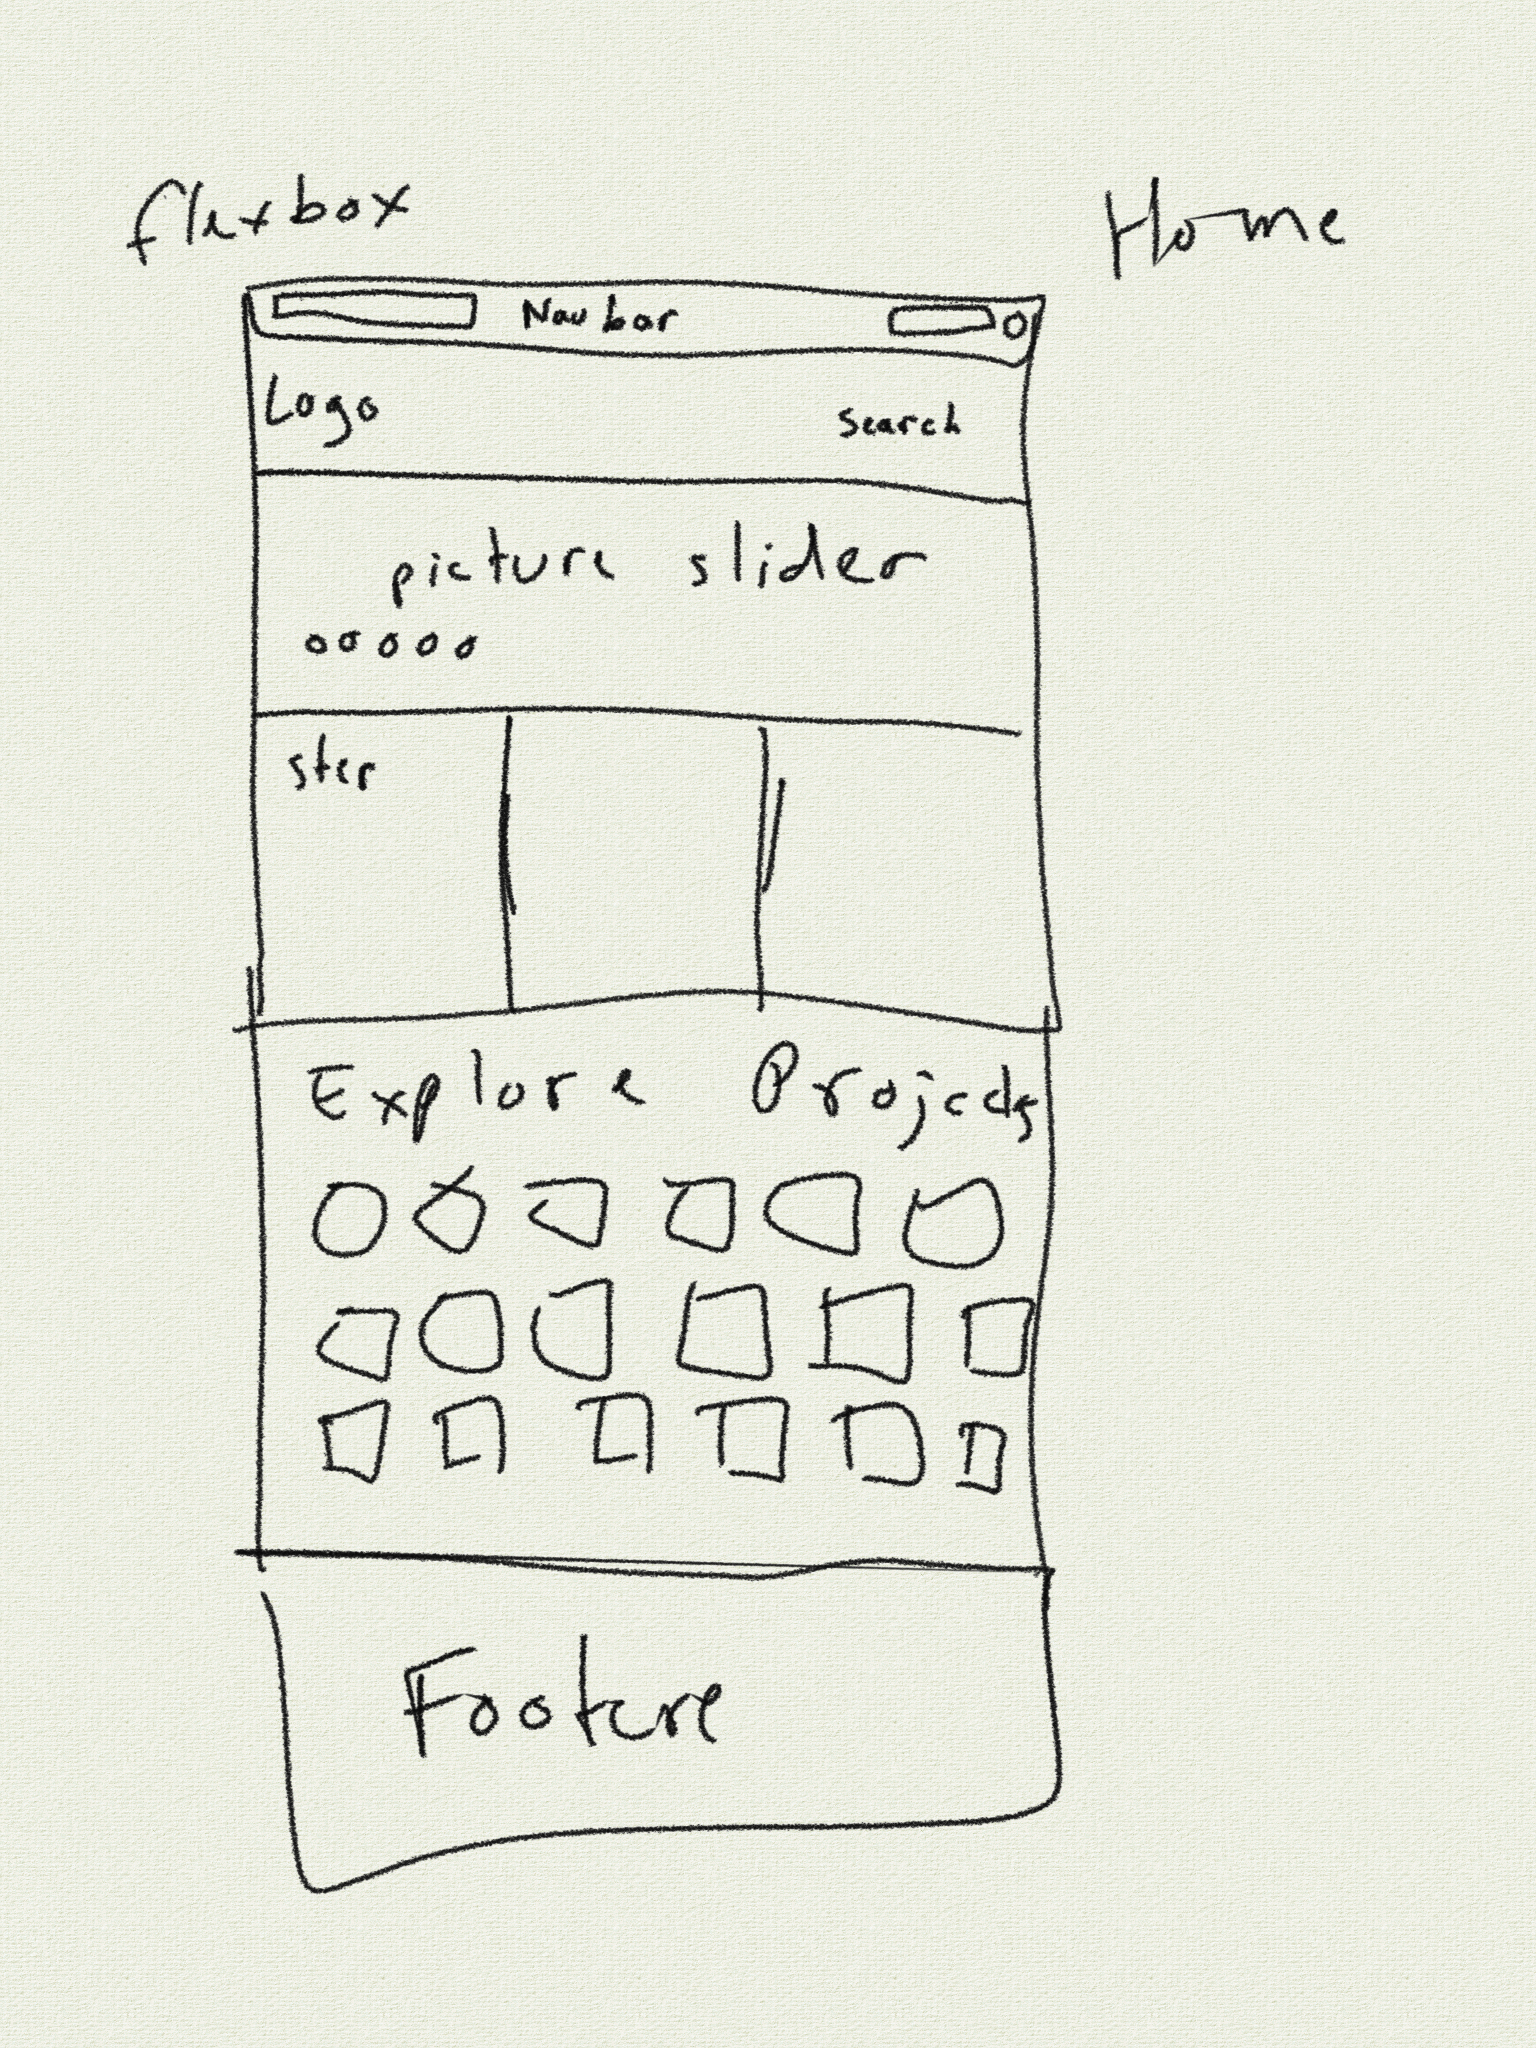 flexbox Home
Nav bar
Logo search
picture slider
Explore Projects
Footere